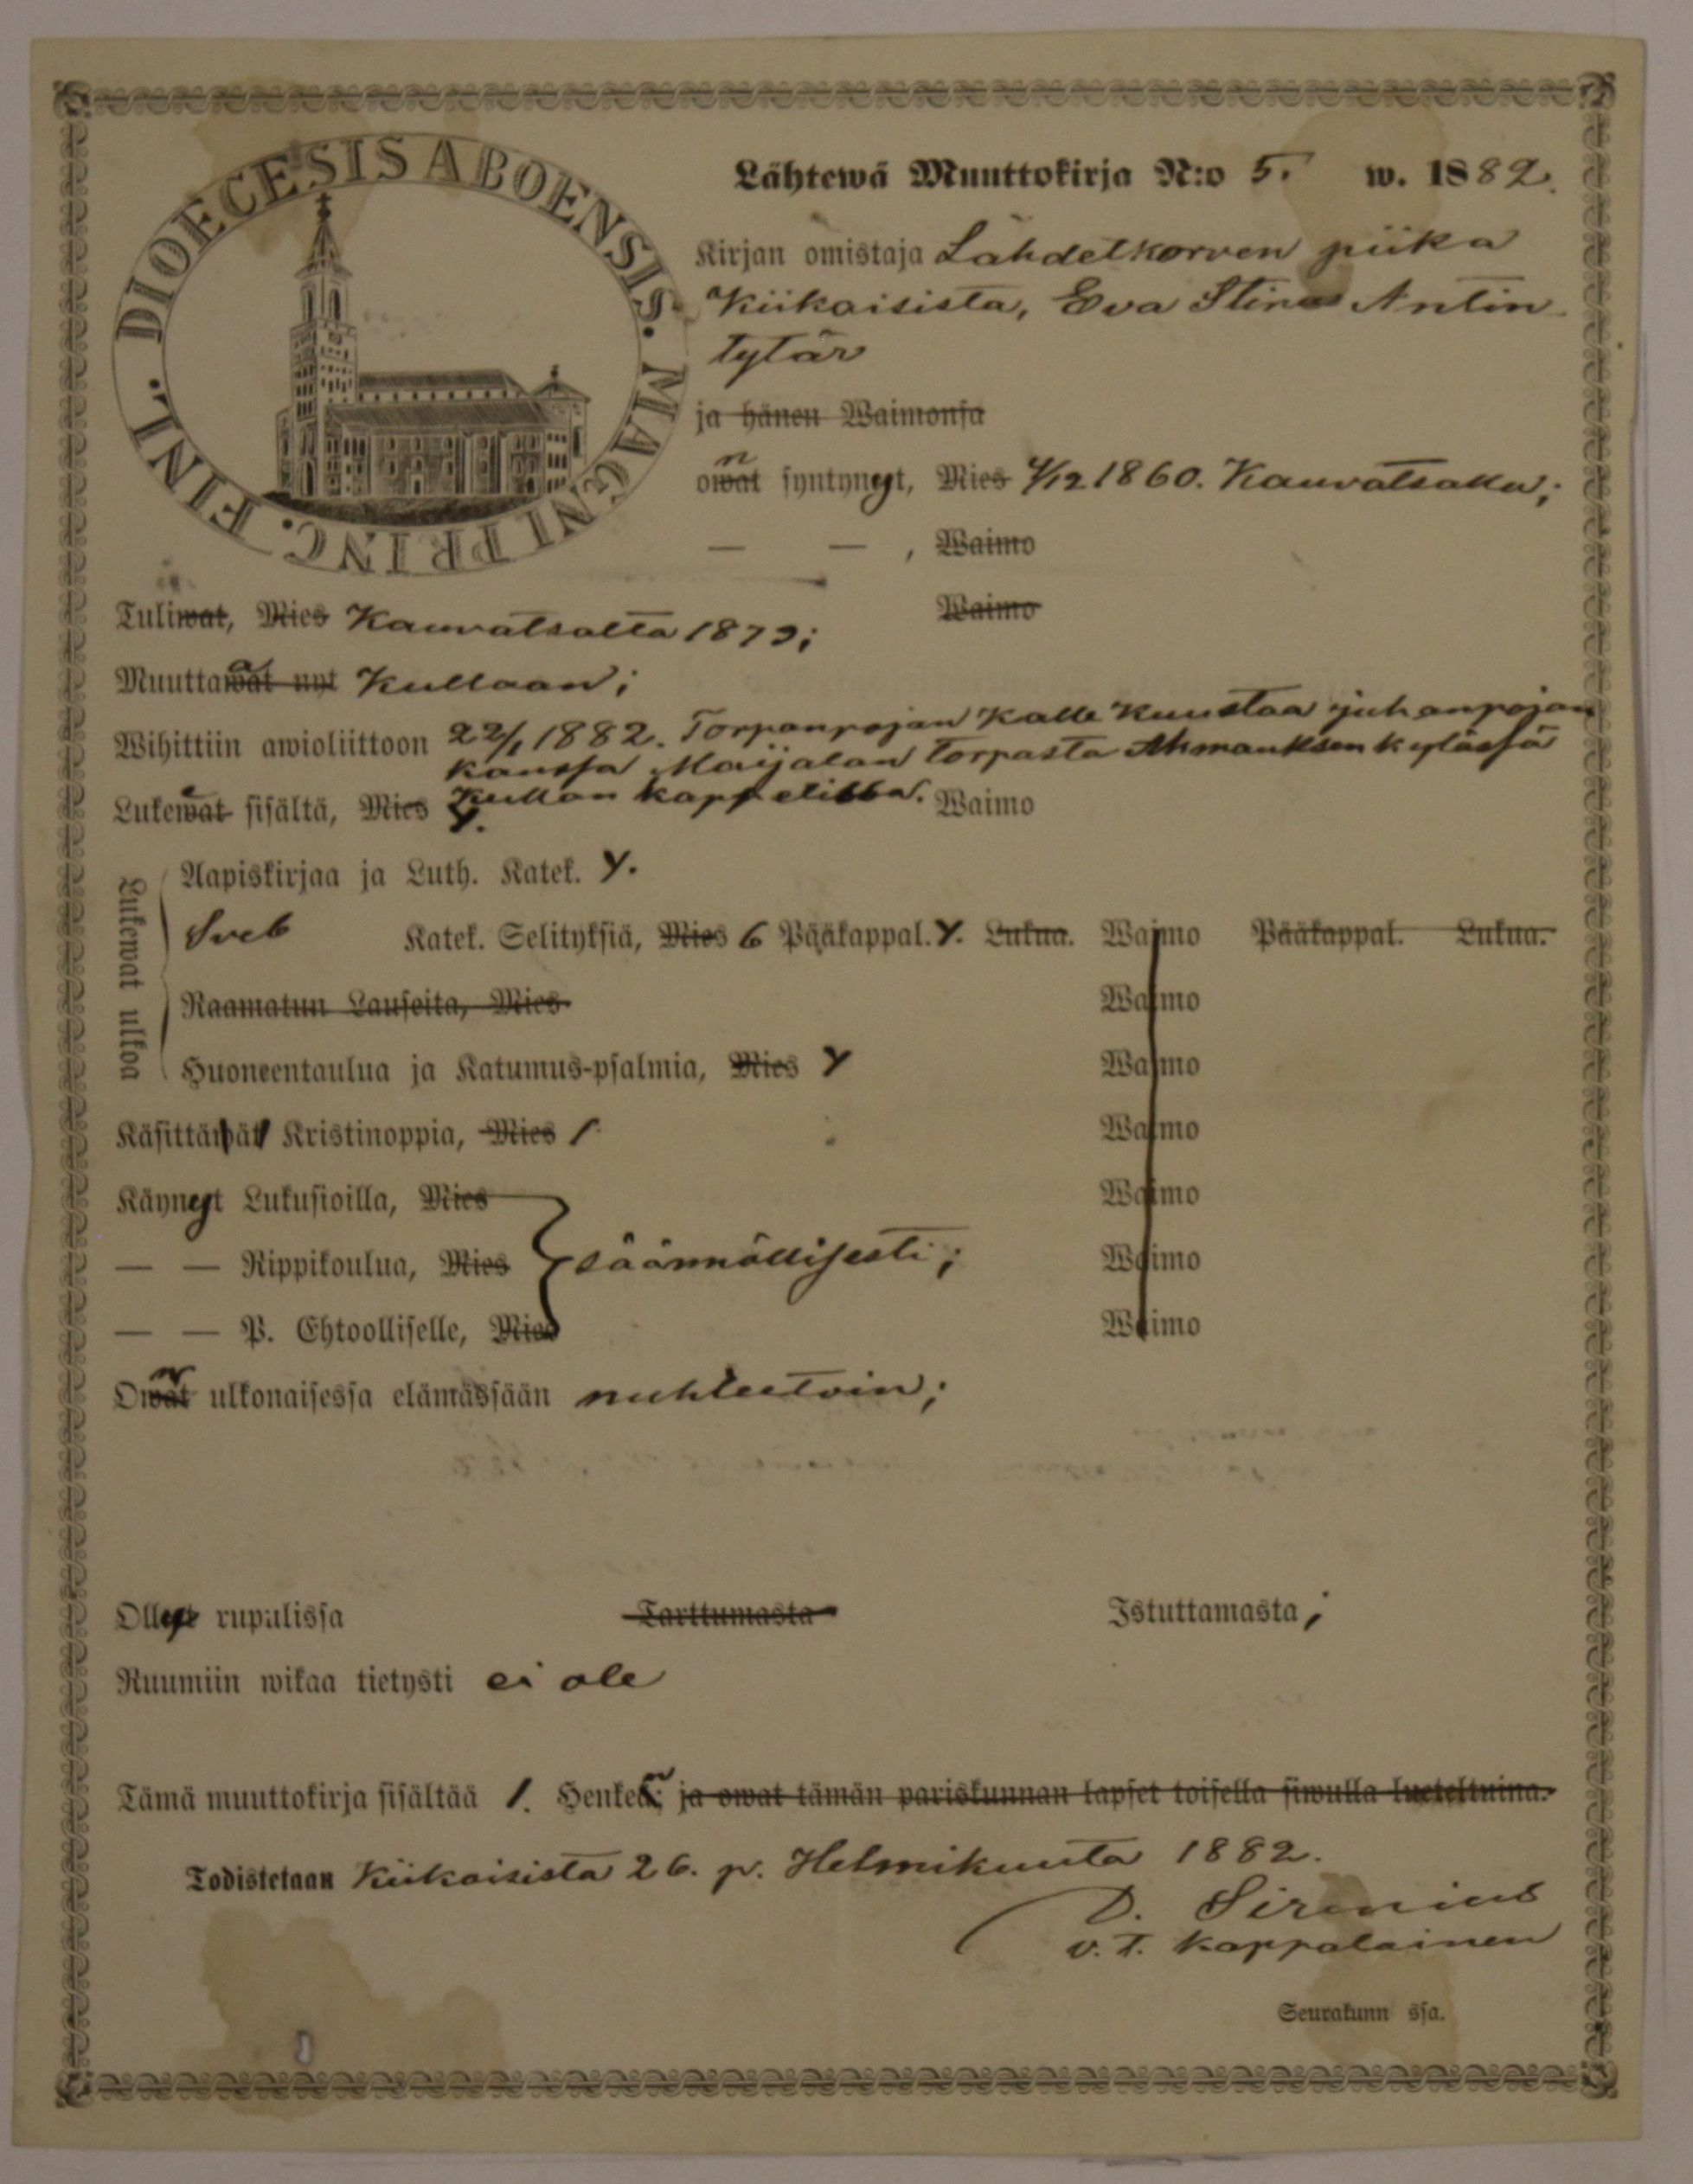 DIOECESIS ABOENSIS. MAGNI PRINC. FINL.
Lähtewä Muuttokirja N:o 5. w. 1882.
Kirjan omistaja Lähdetkorven piika
Kiikaisista, Eva Stina Antin
tytär
ja hänen Waimonsa
owat syntynyt, Mies 4/12 1860. Kauvatsalla;
— — , Waimo
Tuliwat, Mies Kauvatsalta 1879; Waimo
Muuttawat nyt Kullaan;
Wihittiin awioliittoon 22/1 1882. Torpanpojan Kalle Kustaa Juhanpojan
kanssa Maijalan torpasta Ahmauksen kylässä
Kullan kappelissa.
Lukewat sisältä, Mies y. Waimo
Lukewat ulkoa
Aapiskirjaa ja Luth. Katek. y.
Sveb Katek. Selityksiä, Mies 6 Pääkappal. y. Lukua. Waimo Pääkappal. Lukua.
Raamatun Lauseita, Mies Waimo
Huoneentaulua ja Katumus-psalmia, Mies y Waimo
Käsittäwät Kristinoppia, Mies 1 Waimo
Käynyt Lukusioilla, Mies Waimo
— — Rippikoulua, Mies säännöllisesti; Waimo
— — P. Ehtoolliselle, Mies Waimo
Owat ulkonaisessa elämässään nuhteetoin;
Ollut rupulissa Tarttumasta Istuttamasta;
Ruumiin wikaa tietysti ei ole
Tämä muuttokirja sisältää 1. Henkeä; ja owat tämän pariskunnan lapset toisella siwulla lueteltuina.
Todistetaan Kiikaisista 26. p. Helmikuuta 1882.
D. Sirenius
v. t. kappalainen
Seurakunn ssa.